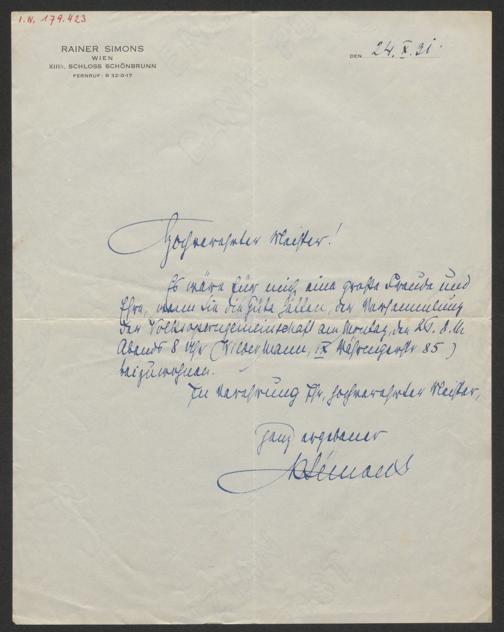 I.N. 179.423
RAINER SIMONS
WIEN
XIII/1, SCHLOSS SCHÖNBRUNN
FERNRUF: R 32-0-17
DEN 24. X. 31.
Hochverehrter Meister!
Es wäre für mich eine große Freude und
Ehre, wenn Sie die Güte hätten, der Versammlung
der Volksoperngemeinschaft am Montag, den 26. d. M.
Abends 8 Uhr (Biedermann, IX Währingerstr 85)
beizuwohnen.
In Verehrung Ihr, hochverehrter Meister,
ganz ergebener
RSimons